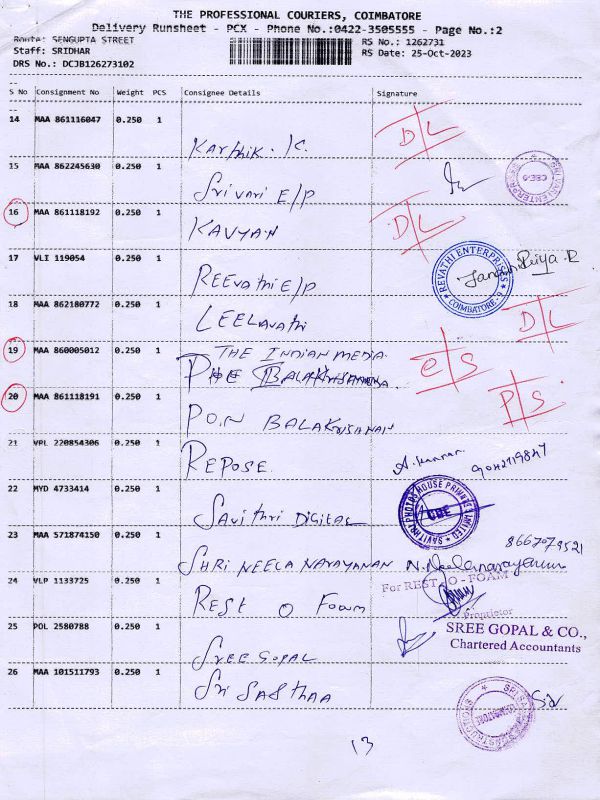 THE PROFESSIONAL COURIERS, COIMBATORE
Delivery Runsheet - PCX - Phone No.:0422-3505555 - Page No.:2
Route: SENGUPTA STREET
Staff: SRIDHAR
DRS No.: DCJB126273102
RS No.: 1262731
RS Date: 25-Oct-2023
S No Consignment No Weight PCS Consignee Details Signature
14 MAA 861116047 0.250 1 Karthik. K. D/L
15 MAA 862245630 0.250 1 Srivari E/P
16 MAA 861118192 0.250 1 KAVYAN D/L
17 VLI 119054 0.250 1 REEvathi E/p REVATHI ENTERPRISES COIMBATORE Priya.R
18 MAA 862180772 0.250 1 LEELavathi D/L
19 MAA 860005012 0.250 1 THE INDIAN MEDIA. O/S
20 MAA 861118191 0.250 1 P.O.N BALAKRISHANAN P/S
21 VPL 220854306 0.250 1 REPOSE 9042119847
22 MYD 4733414 0.250 1 Savithri DIGITAL SAVITHRI PHOTOS HOUSE PRIVATE LIMITED CBE
23 MAA 571874150 0.250 1 SHRI NEELA NARAYANAN N. Neelanarayanan
24 VLP 1133725 0.250 1 REST O Foam For REST - O - FOAM
Proprietor
25 POL 2580788 0.250 1 SREE GOPAL SREE GOPAL & CO.,
Chartered Accountants
26 MAA 101511793 0.250 1 Sri SASthaa
13